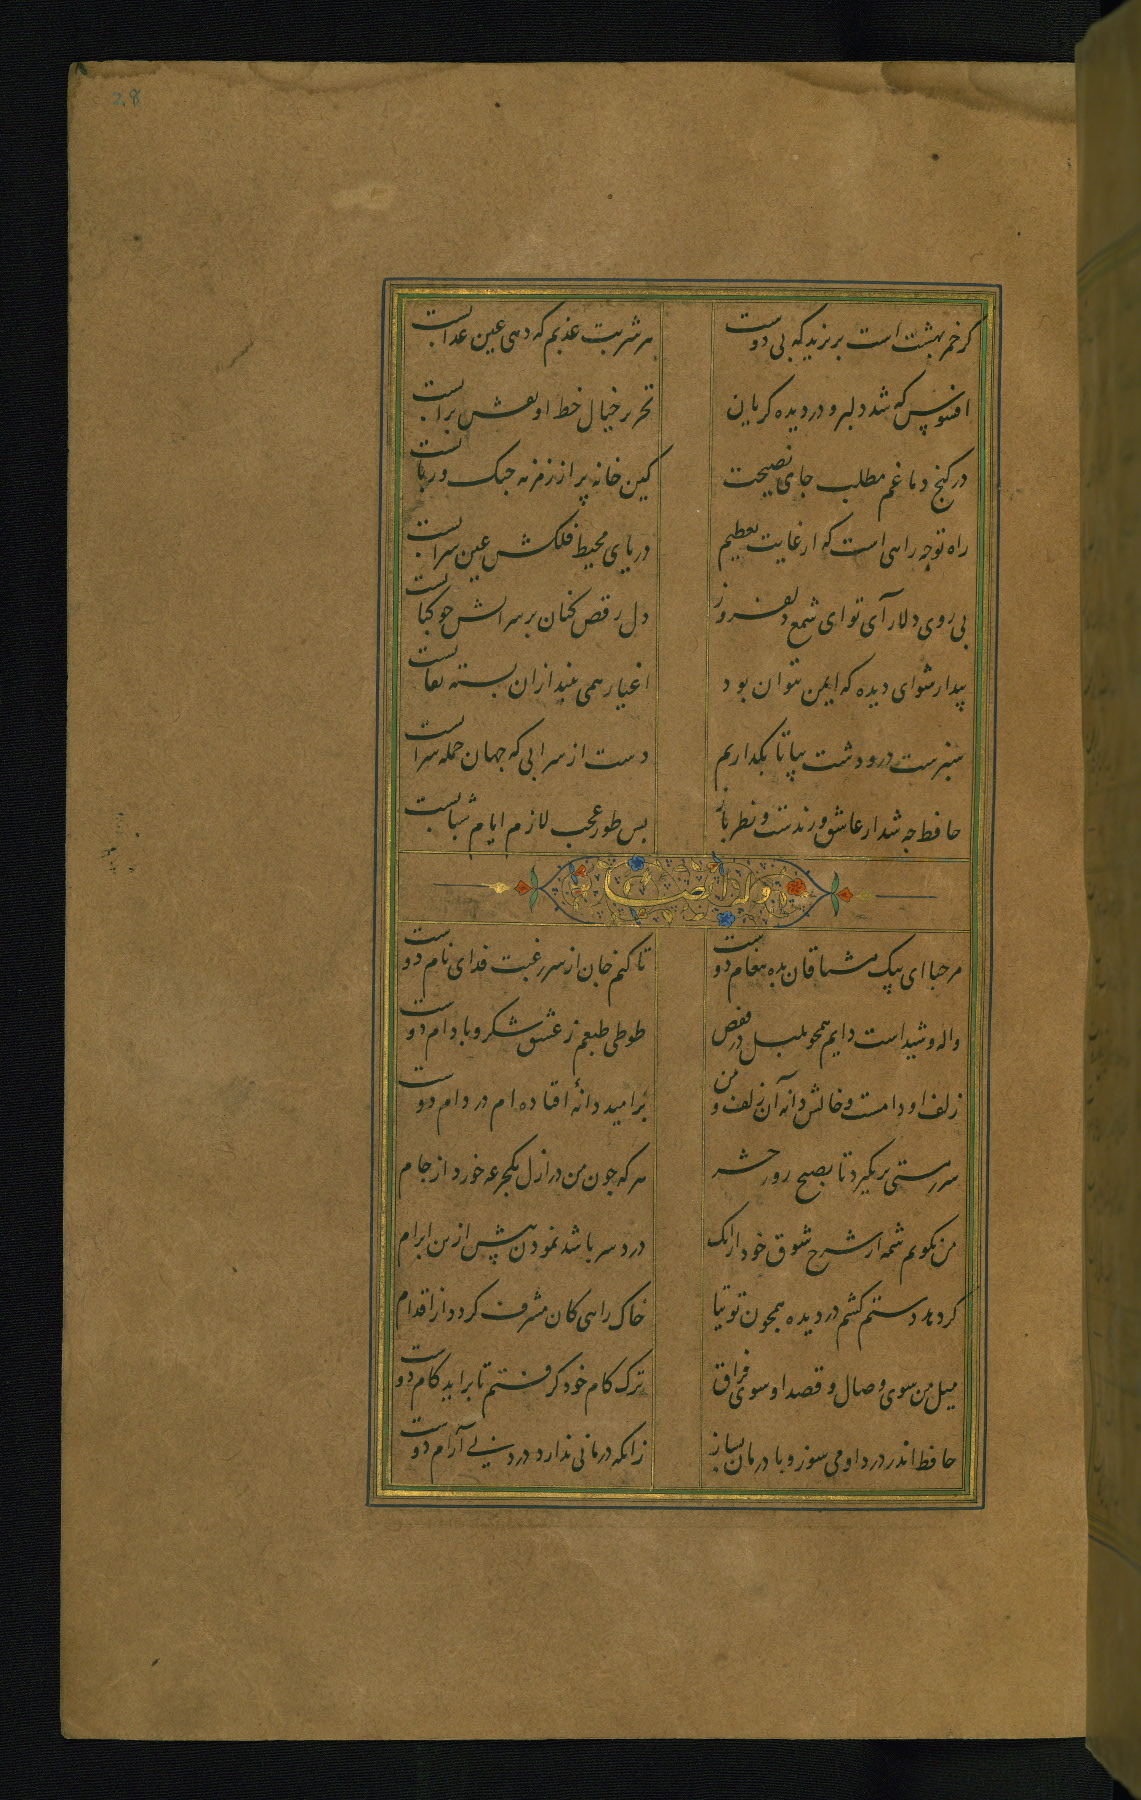 28
کر خمر بهشت است بریزید که بی دوست هر شربت عذبم که دهی عین عذابست
افسوس که شد دلبر و در دیده کریان تحریر خیال خط او نقش برابست
در کنج دماغم مطلب جای نصیحت کین خانه پر از زمزمه جنک و ربابست
راه تو چه راهی است که از غایت تعظیم دریای محیط فلکش عین سرابست
بی روی دلارآی تو ای شمع دلفروز دل رقص کنان بر سر آتش جو کبابست
بیدار شو ای دیده که ایمن نتوان بود اغیار همی بیند از ان بسته نقابست
سبزست در و دشت بیا تا نکذاریم دست از سر ابی که جهان جمله سرابست
حافظ چه شد ار عاشق و رندست و نظرباز بس طور عجب لازم ایام شبابست
وله ایضا
مرحبا ای پیک مشتاقان بده پیغام دوست تا کنم جان از سر رغبت فدای نام دوست
واله و شیداست دایم همجو بلبل در قفص طوطی طبعم ز عشق شکر و بادام دوست
زلف او دامست و خالش دانه آن زلف و من بر امید دانهٔ افتاده ام در دام دوست
سر ز مستی بر نکیرد تا بصبح روز حشر هر که جون من در ازل یکجرعه خورد از جام
من نکویم شمه از شرح شوق خود ازانک درد سر باشد نمودن بیش ازین ابرام
کر دهد دستم کشم در دیده همجون توتیا خاک راهی کان مشرف کردد از اقدام
میل من سوی وصال و قصد او سوی فراق ترک کام خود کرفتم تا براید کام دوست
حافظ اندر درد او می سوز و با درمان بساز زانکه درمانی ندارد درد بی آرام دوست